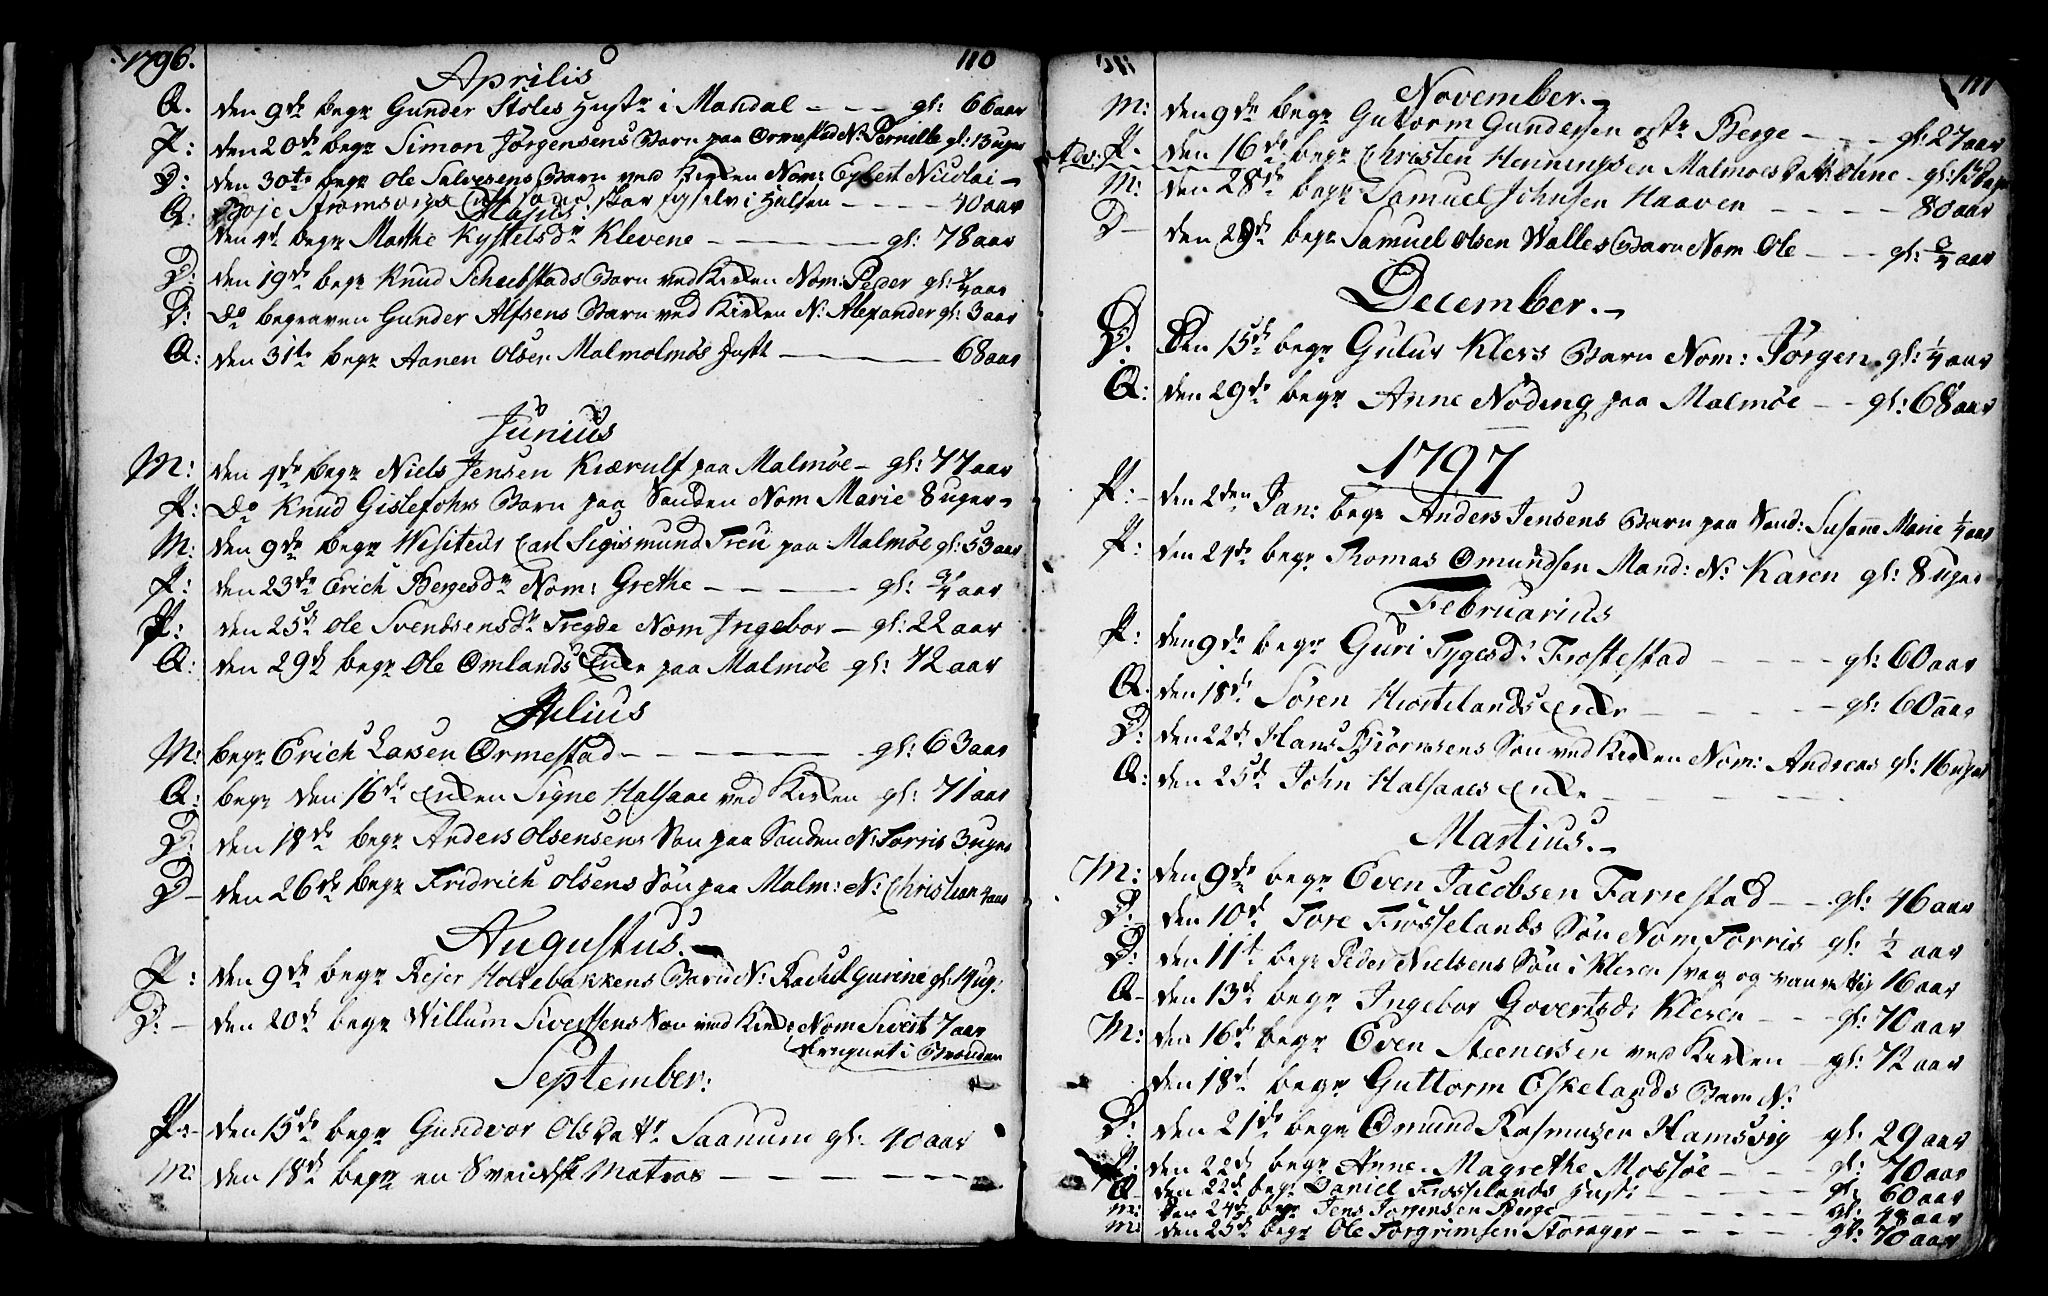 1796. 110
Aprilis
Q. den 9de begr Gunder Stoles Hustr i Mandal - - - gl: 66 aar
P: den 20de begr Simon Jørgensens Barn paa Ormestad N: Pernille gl: 13 uger
D: den 30te begr Ole Salvesens Barn ved Kirken Nom: Egbert Nicolai -
Q: Boje Strømsvigs i Halsen - - - - 40 aar
Majus
den 4de begr Marthe Kystelsdr Klevene - - - gl: 78 aar
D: den 19de begr Knud Barn ved Kirken Nom: Peder gl: aar
D: Do begraven Gunder Alfsens Barn ved Kirken N: Alexander gl: 3 aar
Q: den 31te begr Aanen Olsen Malmolmøs Hustr - 68 aar
Junius
M: den 4de begr Niels Jensen Kiærulf paa Malmøe - gl: 77 aar
P: Do Knud Gislefohrs Barn paa Sanden Nom Marie 8 uger -
M: den 9de begr Visiteur Carl Sigismund Treu paa Malmøe gl: 53 aar
P: den 23de Erich Bergesdr Nom: Grethe - - - gl: 3/4 aar
P: den 25de Ole Svendsensdr Tregde Nom Ingebor - gl: 22 aar
Q: den 29de begr Ole Omlands Enke paa Malmøe gl: 72 aar
Julius
M: begr Erich Larsen Ormestad - - - gl: 63 aar
Q: begr den 16de Enken Signe Halsaae ved Kirken gl: 71 aar
D: den 18de begr Anders Olsensens Søn paa Sanden N: Torris 3 uger
D - den 26de begr Fridrich Olsens Søn paa Malm: N: Christian aar
Augustus. -
P: den 9de begr Rejer Holtebakkens Barn N: Rachel Gurine gl: 14 ug:
D: - den 20de begr Willum Sivertsens Søn ved Kirk: Nom Sivert 7 aar
i Branden
September:
P: - den 15de begr Gundvor Olsdattr Saanum gl: 40 aar
M: den 18de begr en Svensk Matros - - - -
111
November. -
M: den 9de begr Guttorm Gundersen Berge - - - gl: 27 aar
P. den 16de begr Christen Henningsen Malmoes Datt: Oline - gl:
M: den 28de begr Samuel Johnsen Haaven - - - - 80 aar
D - den 28de begr Samuel Olsen Walles Barn Nom Ole - - - gl: 3/4 aar
December. -
D. Den 15de begr Gulus Klevs Barn Nom: Jørgen gl: 1/4 aar
Q: den 29de begr Anne Nøding paa Malmøe - - gl: 68 aar
1797
P: - den 2den Jan: begr Anders Jensens Barn paa Sand: Susanne Marie 1/4 aar
P: den 24de begr Thomas Omundsen Mand: N: Karen gl: 8 uger
Februarius
P: den 9de begr Guri Tygesdr Frostestad - - - - gl: 60 aar
Q. den 18de Søren Hiortelands Enke - - - gl: 60 aar
D: den 22de Hans Biørnsens Søn ved Kirken Nom: Andreas gl: 16 uger
Q: den 25de John Halsaaes Enke - - - -
Martius. -
M: den 9de begr Even Jacobsen Farrestad - - gl: 46 aar
D: den 10de Tore Frøsselands Søn Nom Torris gl: 1/2 aar
D: den 11te begr Peder Nielsens Søn i Kleven svag og vanvittig 16 aar
Q - den 13de begr Ingebor Govertsdr Kleven - - gl: 70 aar
M: den 16de begr Even Steenersen ved Kirken - gl: 72 aar
den 18de begr Guttorm Eskelands Barn N:
D: den 21de begr Omund Rasmusen Hamsvig gl: 29 aar
P. den 22de begr Anne Magrethe Mossøe - - - gl: 70 aar
Q - den 22de begr Daniel Frøsselands Hustr - - - gl: 60 aar
M: den 24de begr Jens Jørgensen Berge - - - gl: 48 aar
M: den 25de begr Ole Torgrimsen Storager - - - gl: 70 aar